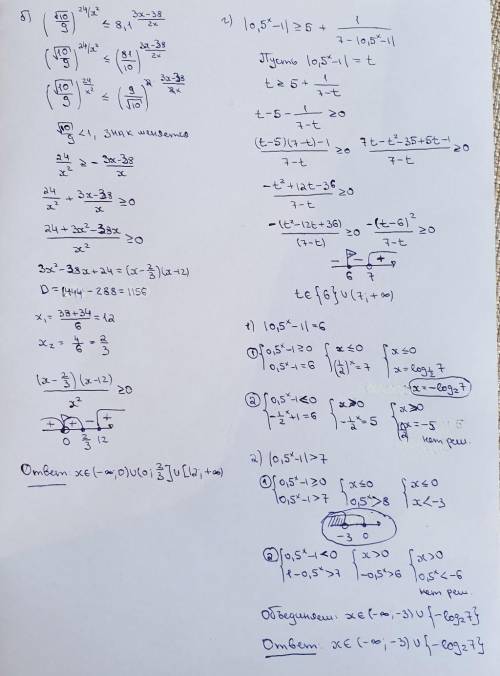 б) (√10/9)^(24/x²) ≤ 8,1^((3x-38)/2x)
(√10/9)^(24/x²) ≤ (81/10)^((3x-38)/2x)
(√10/9)^(24/x²) ≤ (9/√10)^(2·(3x-38)/2x)
√10/9 < 1, знак меняется
24/x² ≥ - (3x-38)/x
24/x² + (3x-38)/x ≥ 0
(24+3x²-38x)/x² ≥ 0
3x²-38x+24 = (x-2/3)(x-12)
D = 1444 - 288 = 1156
x₁ = (38+34)/6 = 12
x₂ = 4/6 = 2/3
(x-2/3)(x-12)/x² ≥ 0
+ + - +
0 2/3 12
Ответ: x∈(-∞;0)∪(0;2/3]∪[12;+∞)
г) |0,5ˣ-1| ≥ 5 + 1/(7-|0,5ˣ-1|)
Пусть |0,5ˣ-1| = t
t ≥ 5 + 1/(7-t)
t-5-1/(7-t) ≥ 0
((t-5)(7-t)-1)/(7-t) ≥ 0 (7t-t²-35+5t-1)/(7-t) ≥ 0
(-t²+12t-36)/(7-t) ≥ 0
-(t²-12t+36)/(7-t) ≥ 0 -(t-6)²/(7-t) ≥ 0
- - +
6 7
t∈{6}∪(7;+∞)
1) |0,5ˣ-1| = 6
① {0,5ˣ-1≥0 {x≤0 {x≤0
0,5ˣ-1=6 (1/2)ˣ=7 x=log½7
x=-log₂7
② {0,5ˣ-1<0 {x>0 {x>0
-½ˣ+1=6 -½ˣ=5 ½ˣ=-5
нет реш.
2) |0,5ˣ-1|>7
① {0,5ˣ-1≥0 {x≤0 {x≤0
0,5ˣ-1>7 0,5ˣ>8 x<-3
-3 0
② {0,5ˣ-1<0 {x>0 {x>0
1-0,5ˣ>7 -0,5ˣ>6 0,5ˣ<-6
нет реш.
Объединяем: x∈(-∞;-3)∪{-log₂7}
Ответ: x∈(-∞;-3)∪{-log₂7}